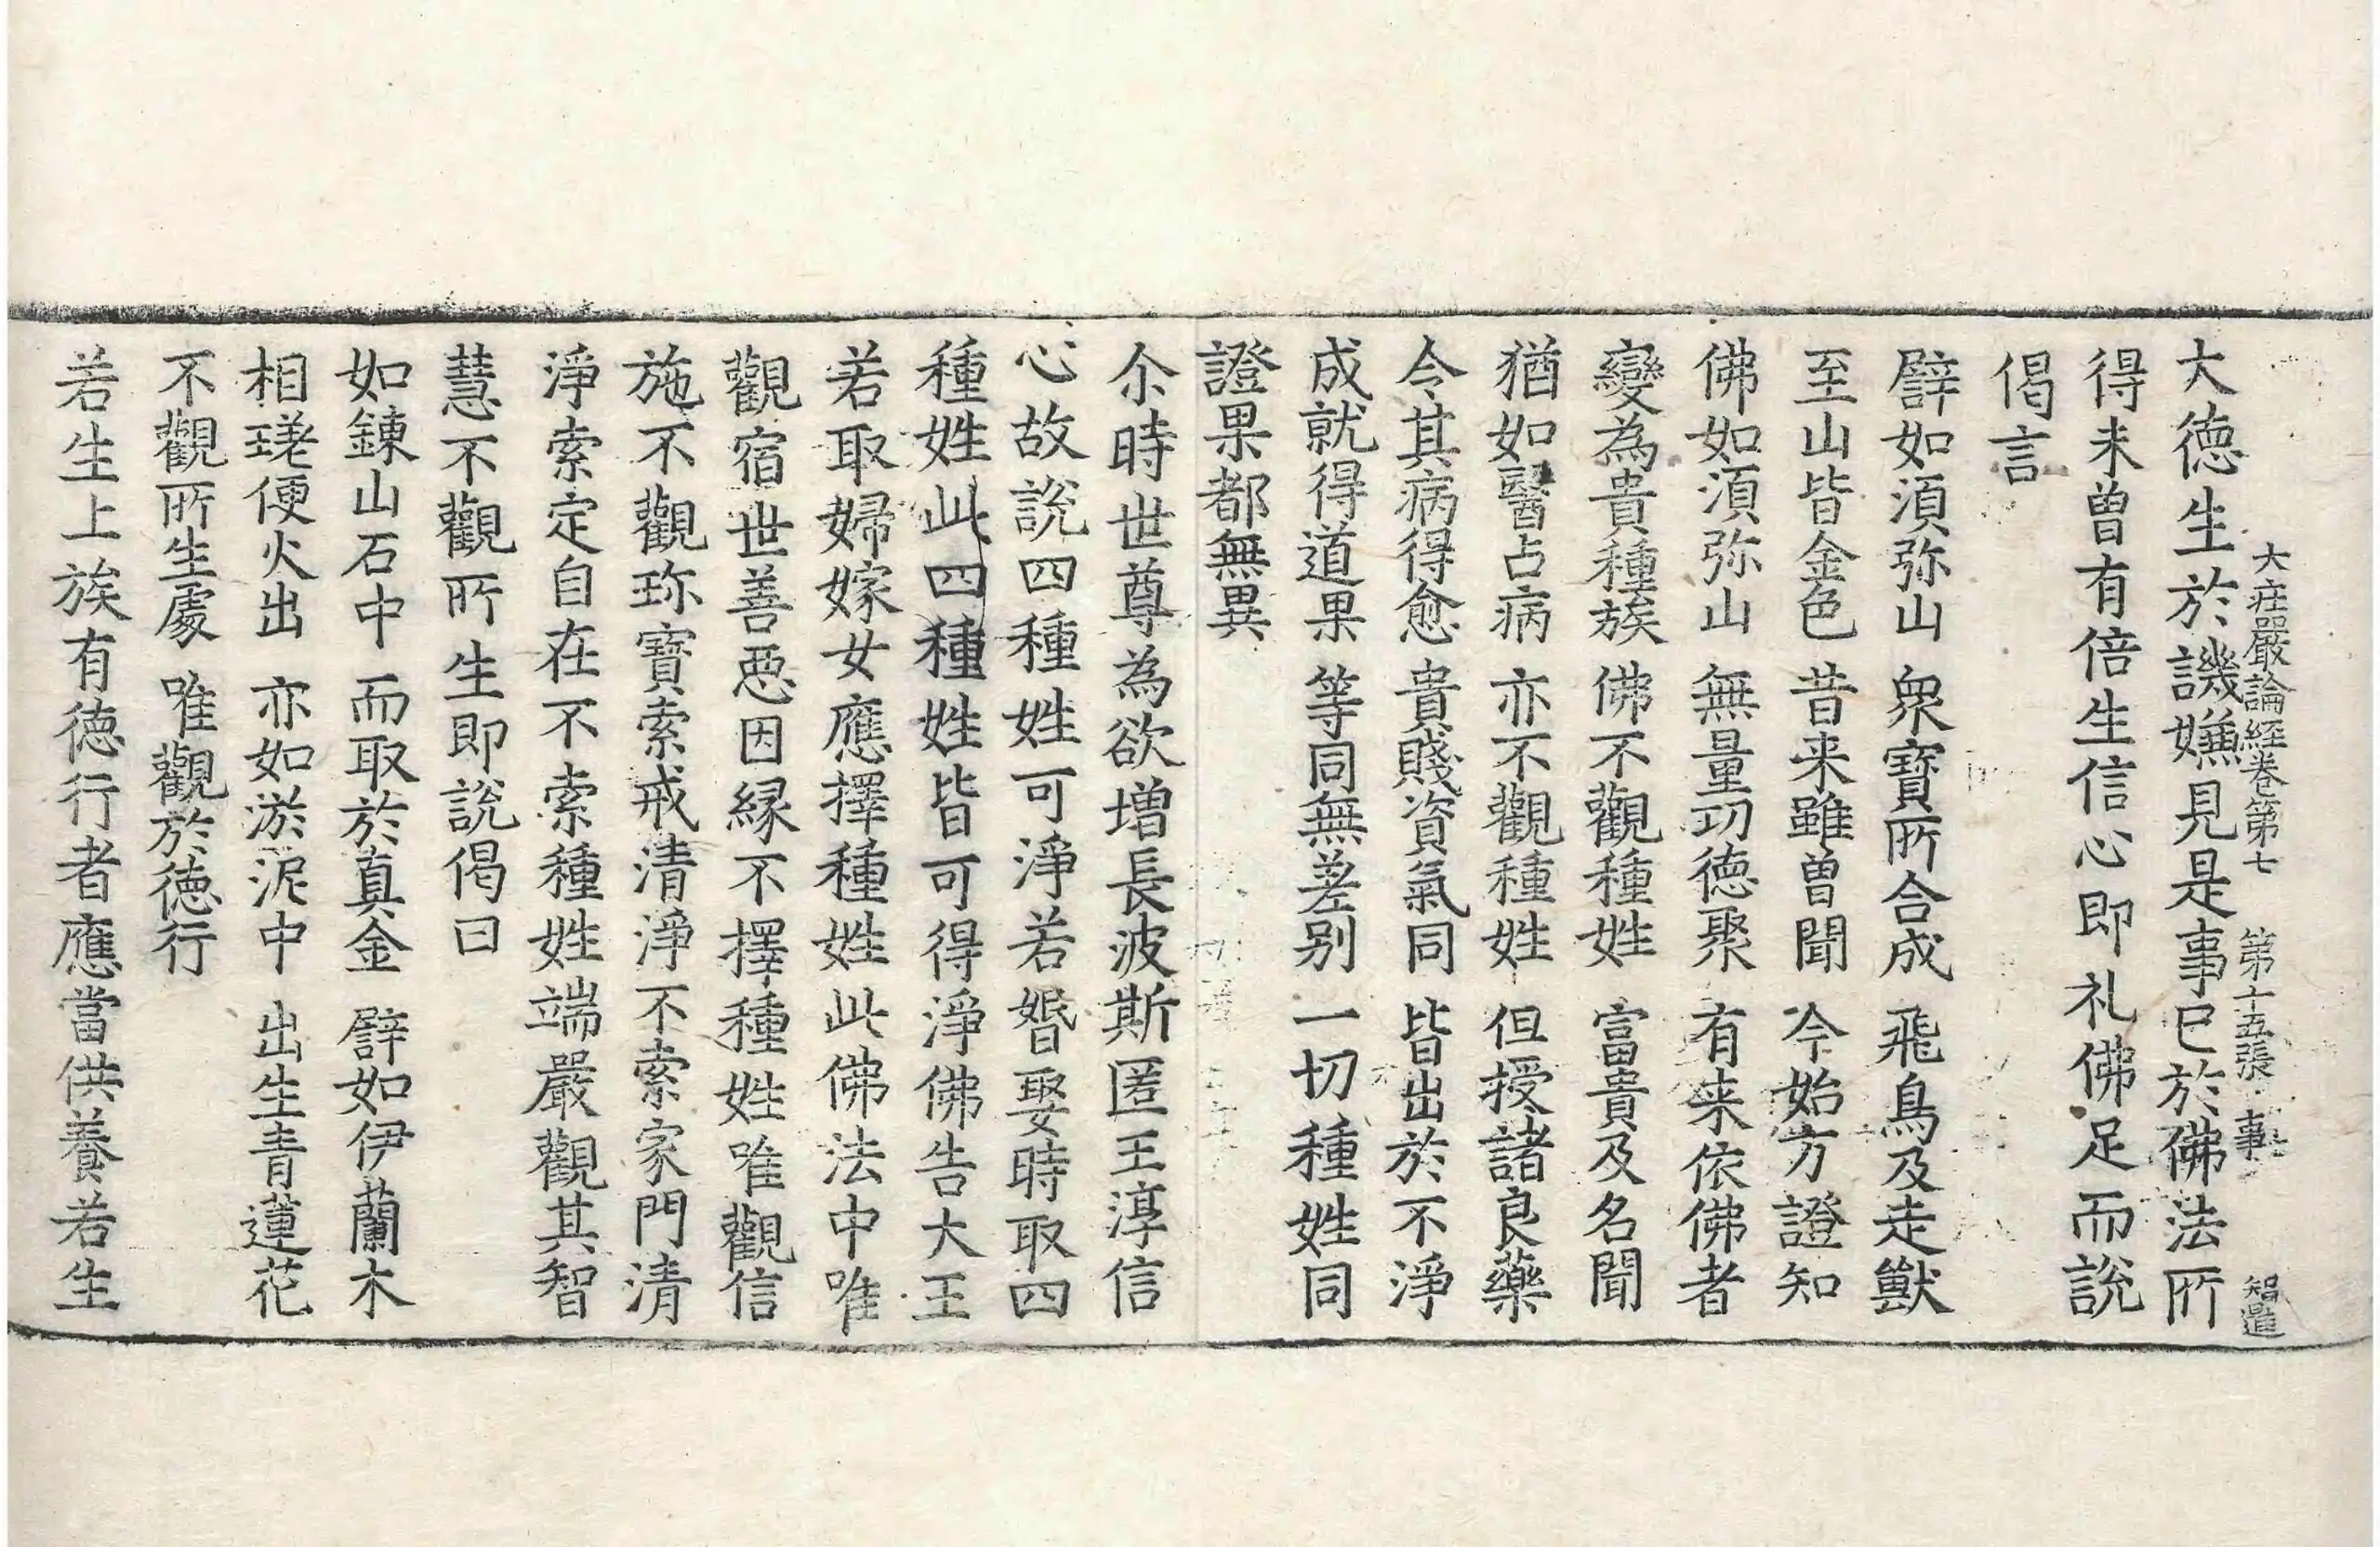 大庄嚴論經卷第七 第十五張 事 智遥
大德生於譏嫌見是事已於佛法所
得未曾有倍生信心即礼佛足而說
偈言
譬如須弥山 衆寶所合成 飛鳥及走獸
至山皆金色 昔来雖曾聞 今始方證知
佛如須弥山 無量功德聚 有来依佛者
變為貴種族 佛不觀種姓 富貴及名聞
猶如醫占病 亦不觀種姓 但授諸良藥
令其病得愈 貴賤資氣同 皆出於不淨
成就得道果 等同無差别 一切種姓同
證果都無異
尒時世尊為欲增長波斯匿王淳信
心故說四種姓可淨若婚娶時取四
種姓此四種姓皆可得淨佛告大王
若取婦嫁女應擇種姓此佛法中唯
觀宿世善惡因縁不擇種姓唯觀信
施不觀珎寶索戒清淨不索家門清
淨索定自在不索種姓端嚴觀其智
慧不觀所生即說偈曰
如鍊山石中 而取於真金 譬如伊蘭木
相瑳便火出 亦如淤泥中 出生青蓮花
不觀所生處 唯觀於德行
若生上族有德行者應當供養若生